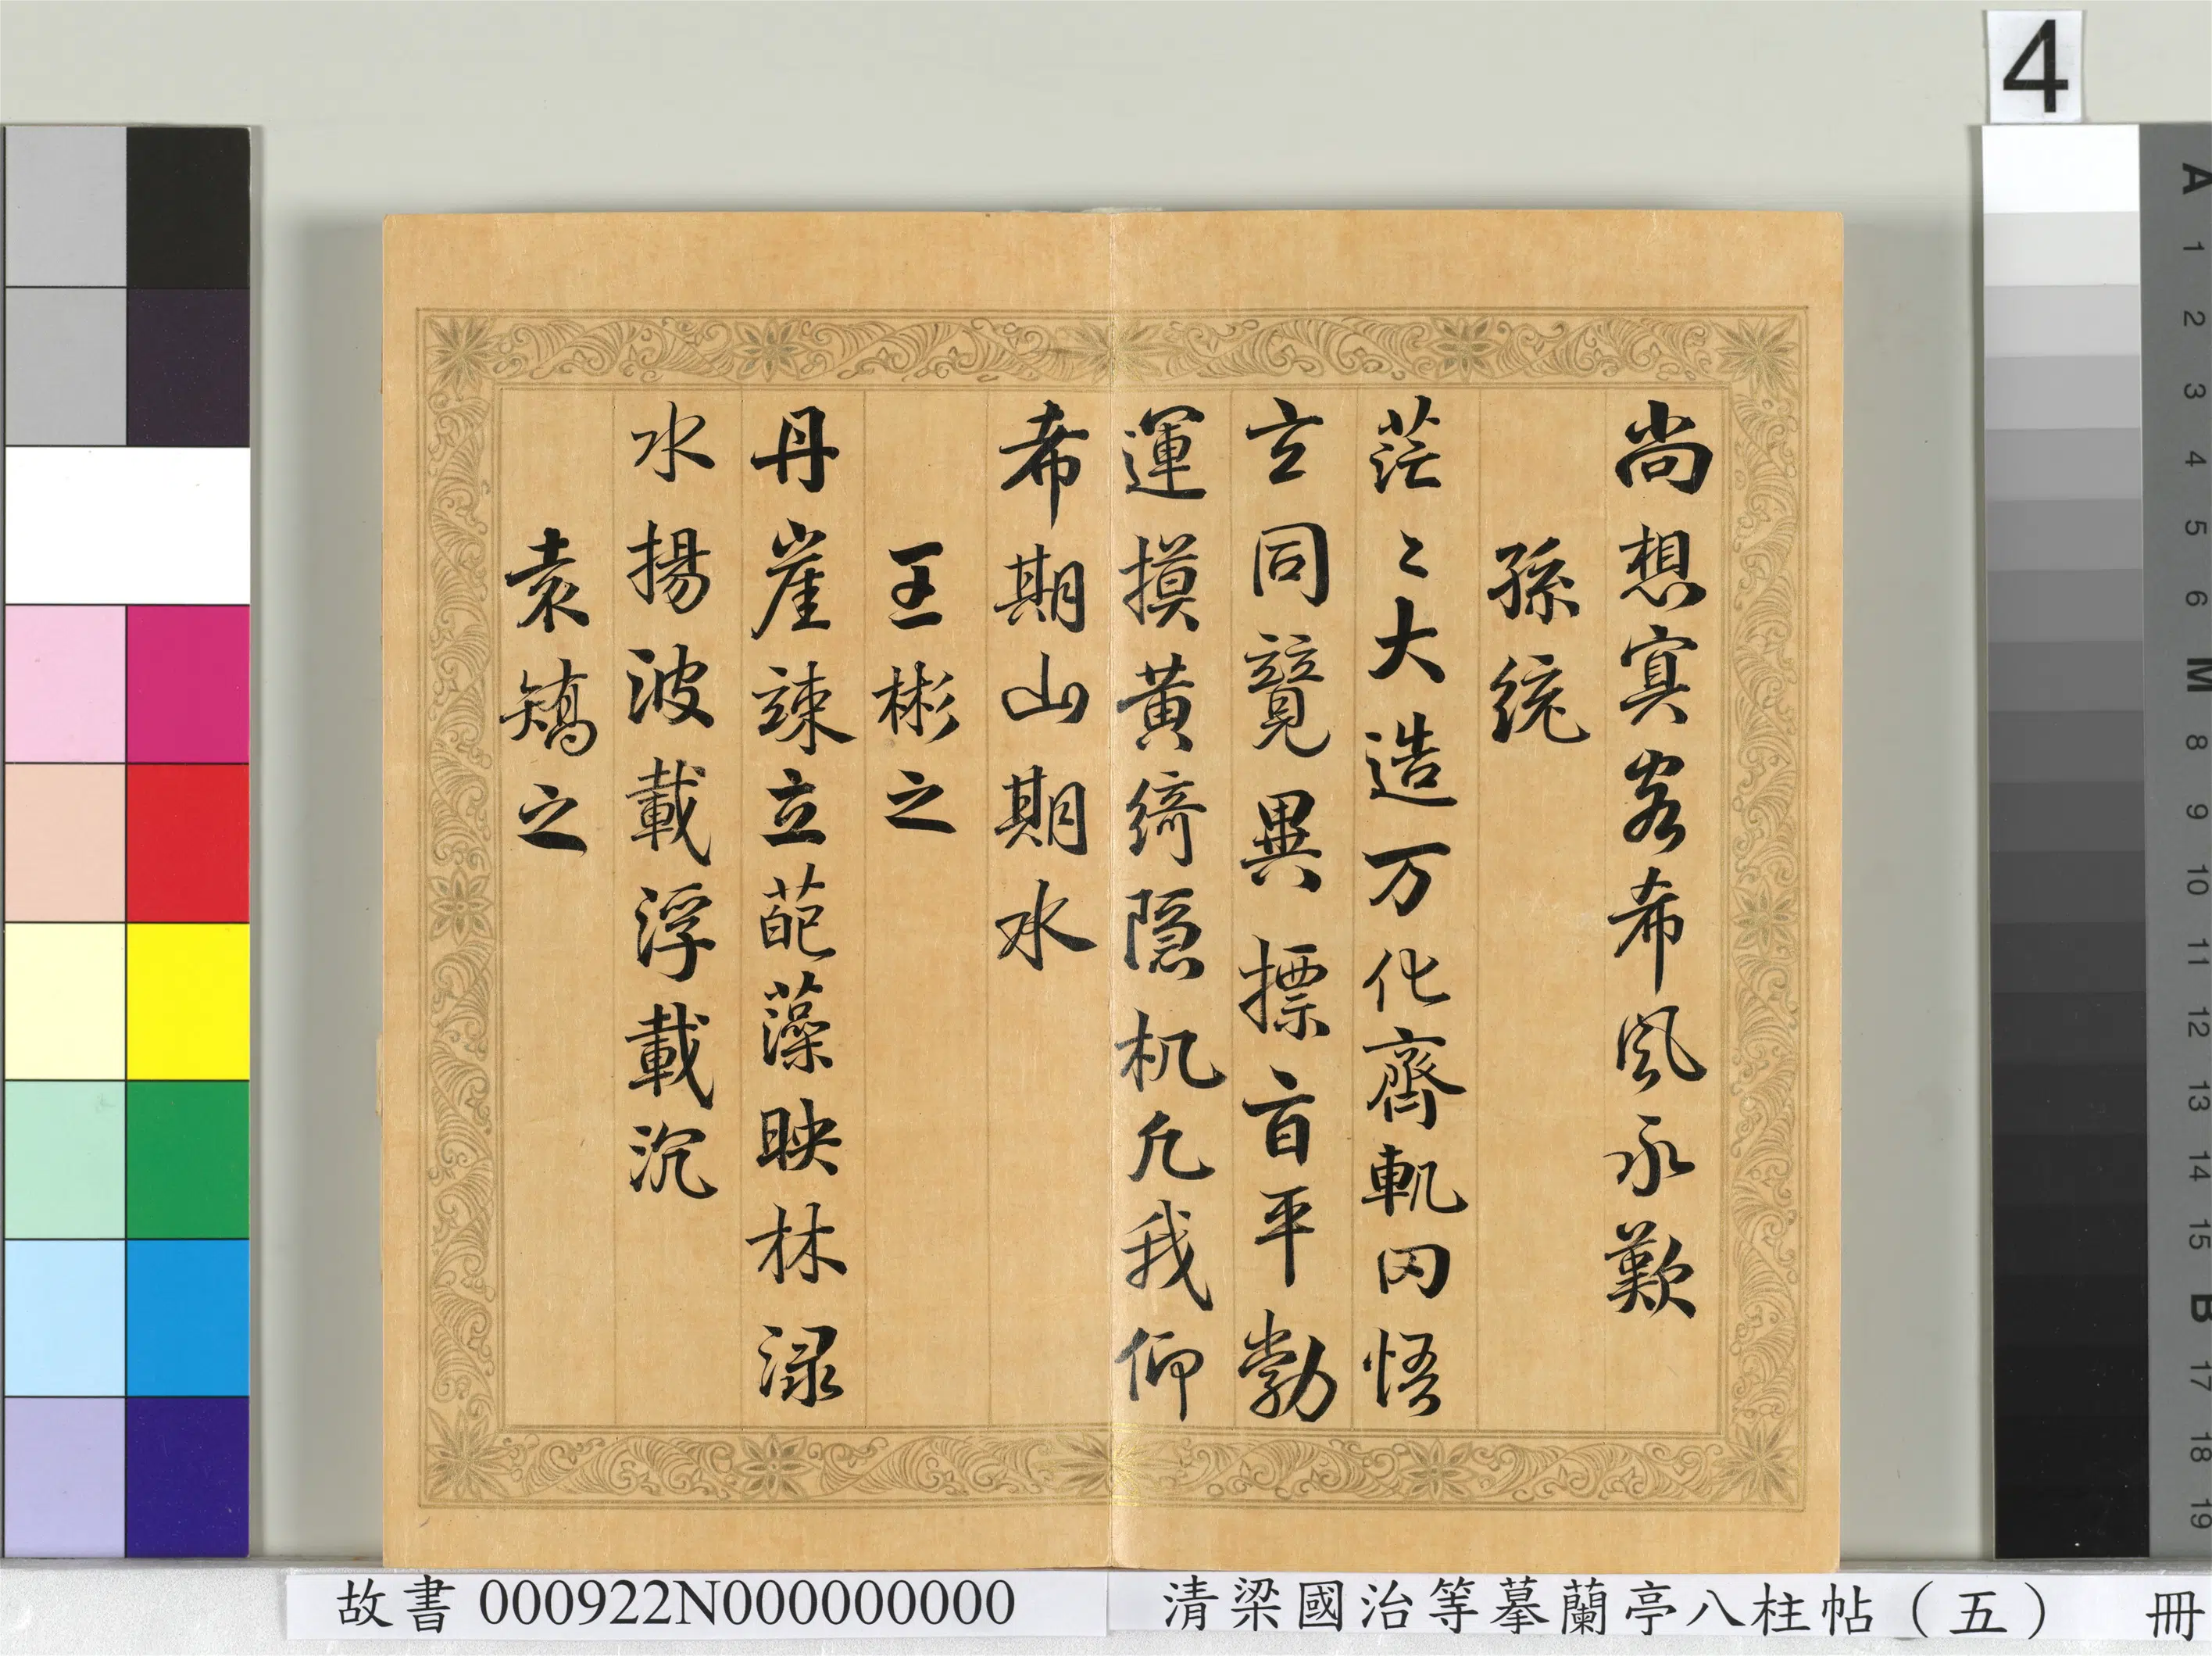 尚想㝠客希風永歎
孫統
茫〻大造万化齊軌罔悟
玄同競異摽旨平勃
運摸黃綺隱机凢我仰
希期山期水
王彬之
丹崖竦立葩藻映林淥
水揚波載浮載沉
袁矯之
4
A 1 2 3 4 5 6 M 8 9 10 11 12 13 14 15 B 17 18 19
故書 000922N000000000
清梁國治等摹蘭亭八柱帖（五） 冊